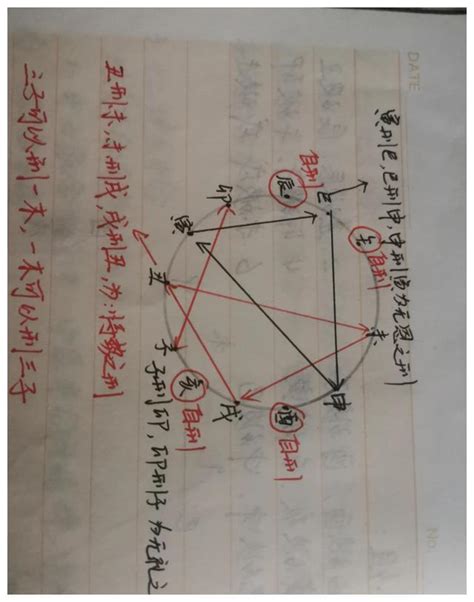 DATE
No.
寅刑巳,巳刑申,申刑寅为无恩之刑
自刑
辰
巳
午 自刑
卯
寅
未
丑
申
子
子刑卯,卯刑子 为无礼之
亥 自刑
戌
酉 自刑
丑刑未,未刑戌,戌刑丑,为:恃势之刑
三子可以刑一木,一木可以刑三子